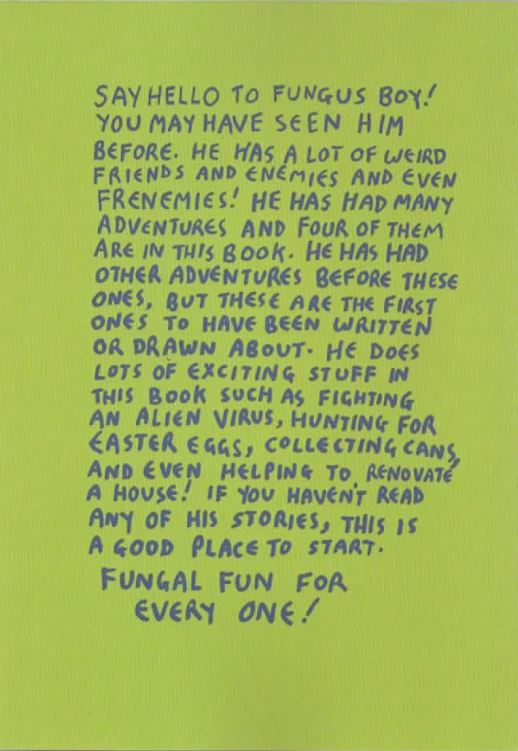 SAY HELLO TO FUNGUS BOY!
YOU MAY HAVE SEEN HIM
BEFORE. HE HAS A LOT OF WEIRD
FRIENDS AND ENEMIES AND EVEN
FRENEMIES! HE HAS HAD MANY
ADVENTURES AND FOUR OF THEM
ARE IN THIS BOOK. HE HAS HAD
OTHER ADVENTURES BEFORE THESE
ONES, BUT THESE ARE THE FIRST
ONES TO HAVE BEEN WRITTEN
OR DRAWN ABOUT. HE DOES
LOTS OF EXCITING STUFF IN
THIS BOOK SUCH AS FIGHTING
AN ALIEN VIRUS, HUNTING FOR
EASTER EGGS, COLLECTING CANS,
AND EVEN HELPING TO RENOVATE
A HOUSE! IF YOU HAVEN'T READ
ANY OF HIS STORIES, THIS IS
A GOOD PLACE TO START.
FUNGAL FUN FOR
EVERY ONE!